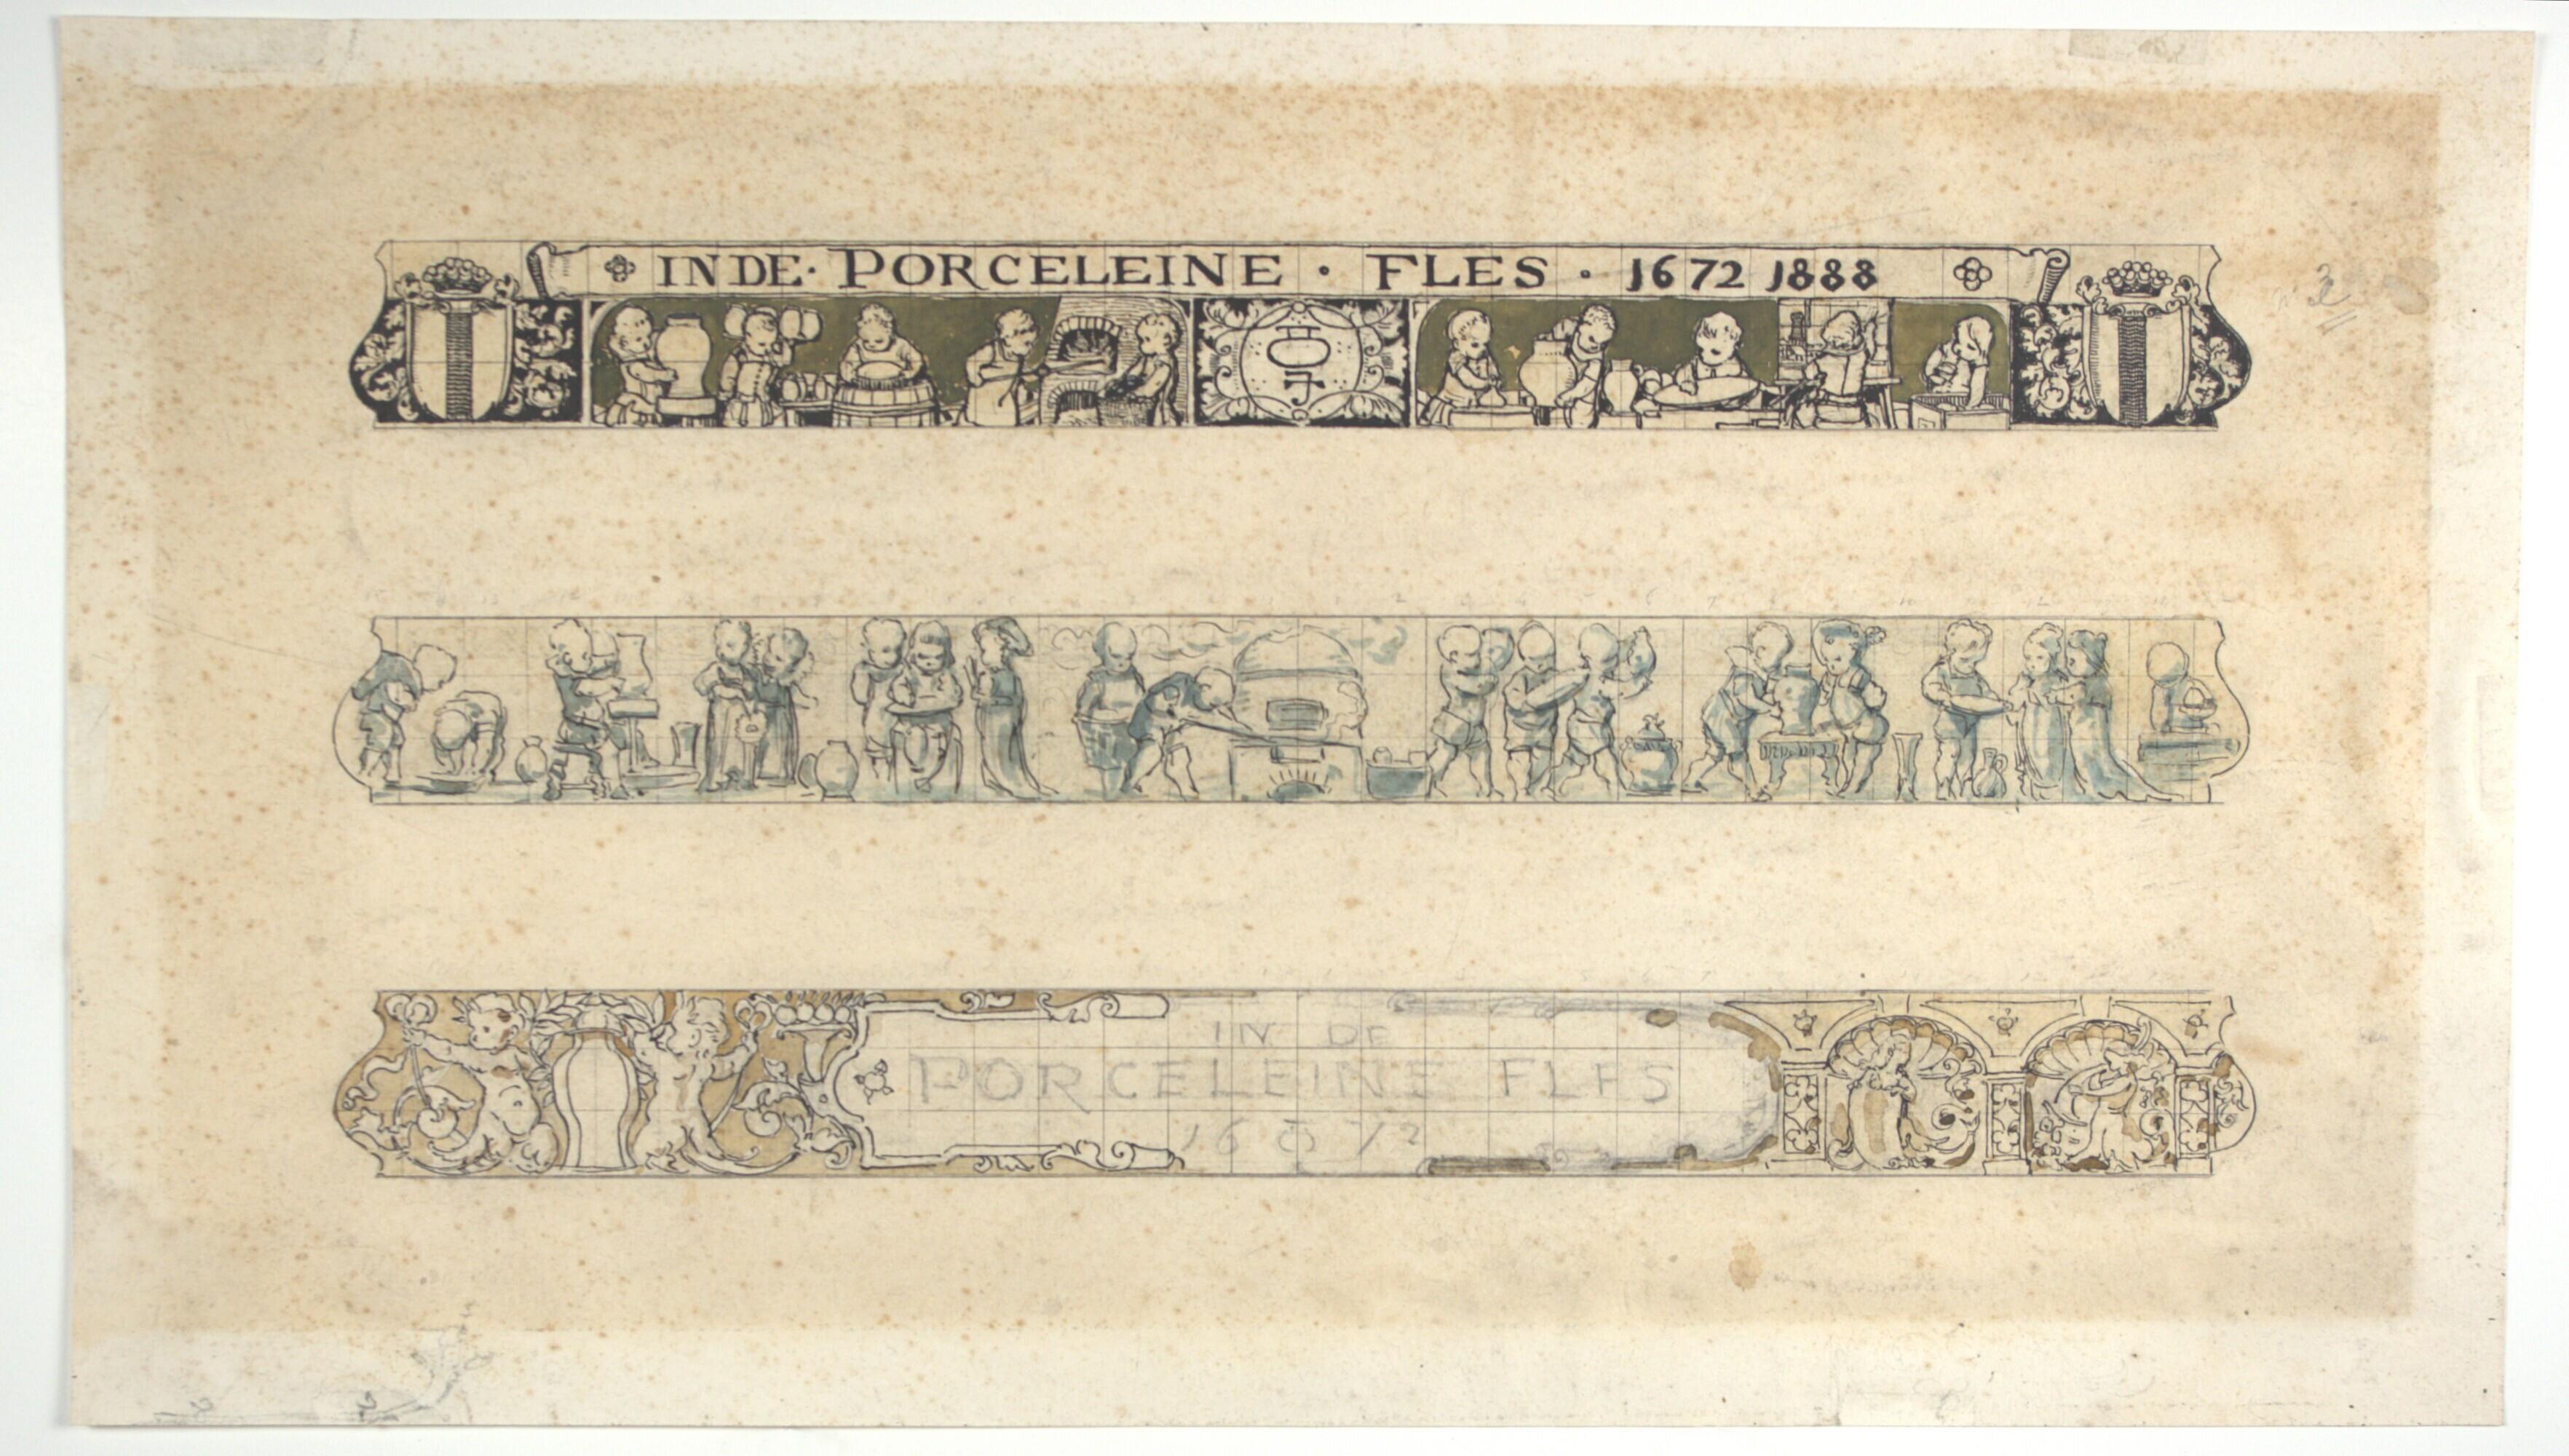 INDE · PORCELEINE · FLES · 1672 1888
IN DE
PORCELEINE FLES
1672